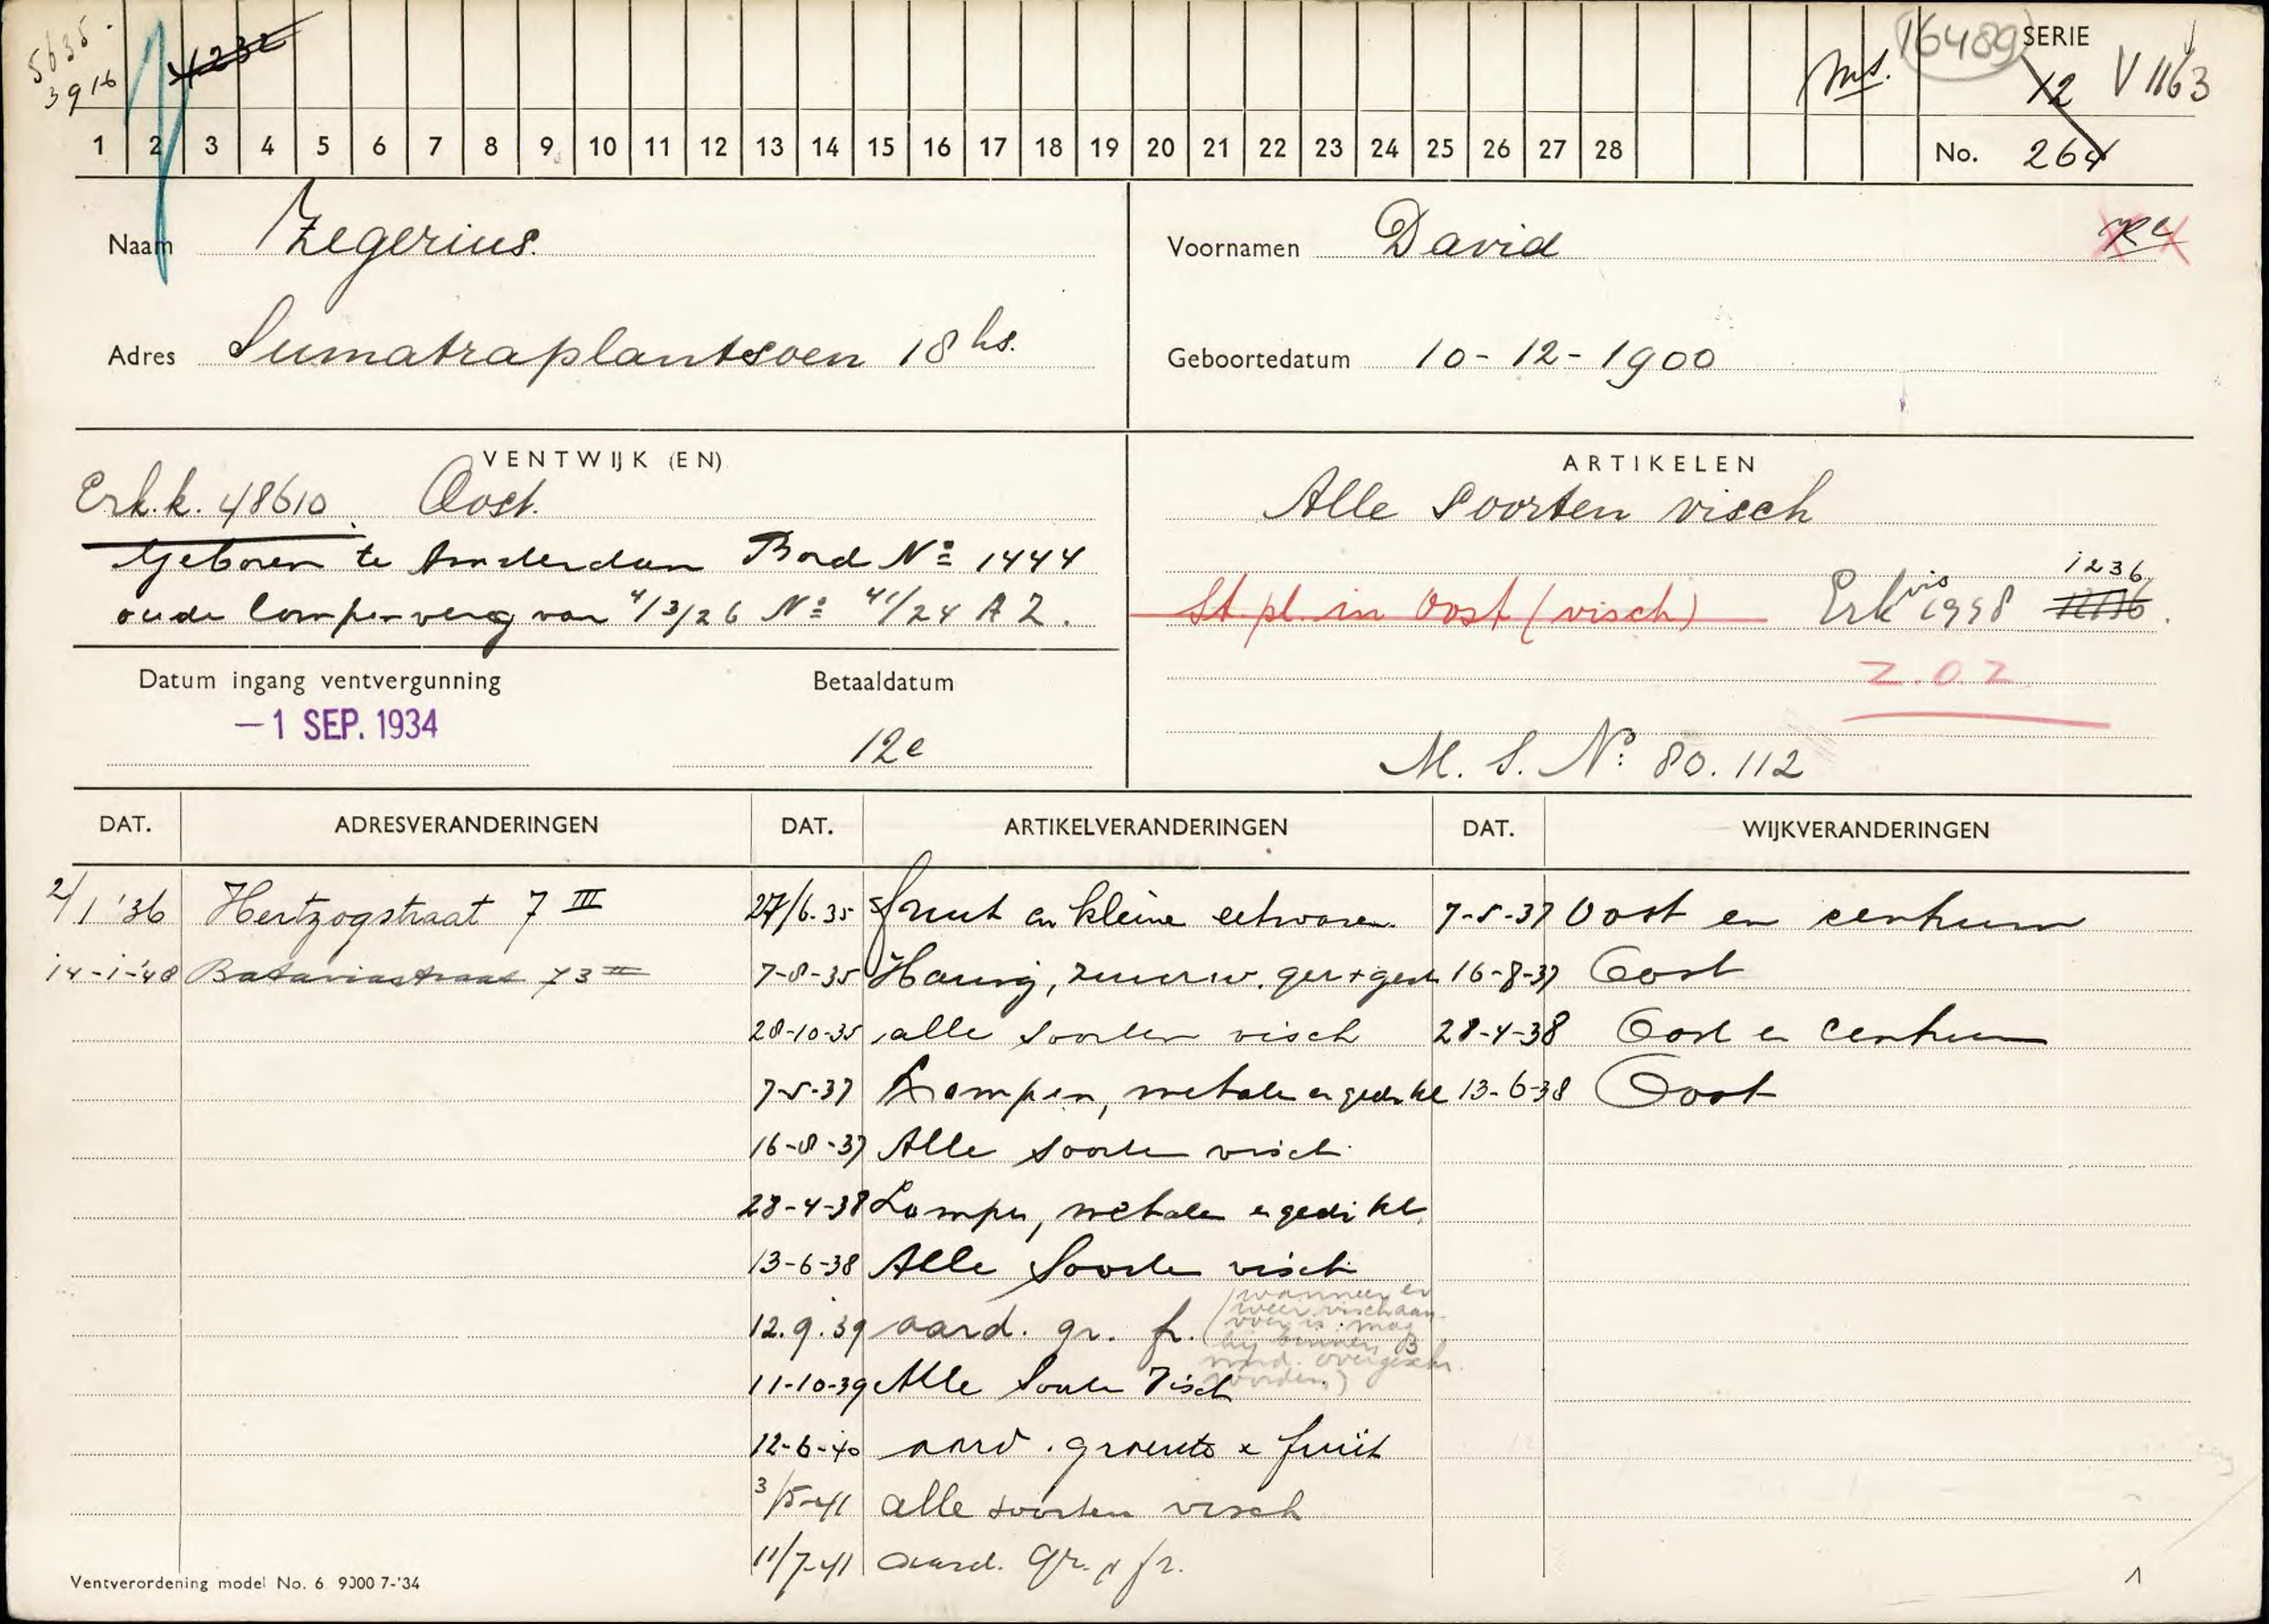 5635.
3916
4232
ms.
16489
SERIE
12
V 1163
1 2 3 4 5 6 7 8 9 10 11 12 13 14 15 16 17 18 19 20 21 22 23 24 25 26 27 28
No. 264
Naam Zegerius.
Voornamen David
Adres Sumatraplantsoen 18 hs.
Geboortedatum 10-12-1900
VENTWIJK (EN)
Erk.k. 48610 Oost.
Geboren te Amsterdam Bord No 1444
oude lompenverg van 4/3/26 No 41/24 A Z.
ARTIKELEN
Alle soorten visch
1236
St. pl. in Oost (visch) Erk vis 1998
Z.O.Z
M. S. No. 80.112
Datum ingang ventvergunning
Betaaldatum
-1 SEP. 1934
12e
DAT. ADRESVERANDERINGEN DAT. ARTIKELVERANDERINGEN DAT. WIJKVERANDERINGEN
2/1 '36 Hertzogstraat 7 III 27/6-35 fruit en kleine eetwaren. 7-5-37 Oost en centrum
14-1-'40 Bataviastraat 73 II 7-8-35 Haring, zuurw. ger + gest 16-8-37 Oost
28-10-35 alle soorten visch 28-4-38 Oost en Centrum
7-5-37 Lompen, metalen en gedr. kl 13-6-38 Oost
16-8-37 Alle soorten visch
28-4-38 Lompen, metalen en gedr. kl.
13-6-38 Alle Soorten visch
12.9.39 aard. gr. fr. (wanneer er
weer vischaan-
voer is mag
hij binnen 3
mnd. overgeschr.
worden)
11-10-39 Alle Soorten Visch
12-6-40 aard. groente & fruit
3/5-41 alle soorten visch
11/7-41 aard. gr. & fr.
Ventverordening model No. 6 9000 7-'34
1